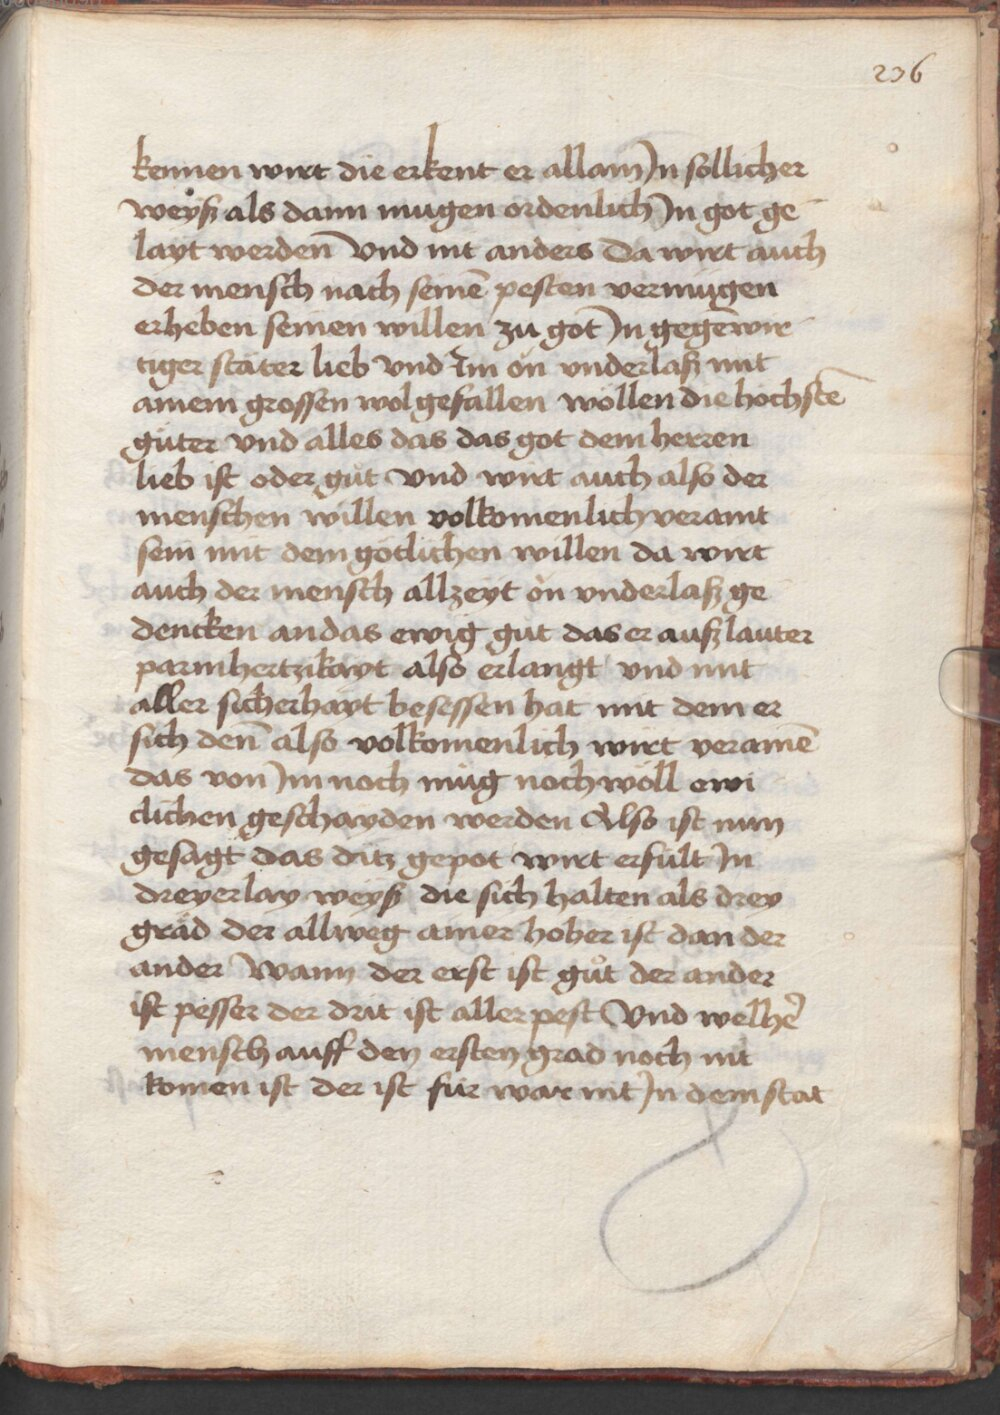 236
kennen wirt die erkent er allain Jn sollicher
weyß als dann mugen ordenlich Jn got ge
layt werden Vnd nit anders Da wirt auch
der mensch nach seinē pesten vermugen
erheben seinen willen zu got Jn gegēwir
tiger stäter lieb Vnd Jm on vnderlaß mit
ainem grossen wolgefallen wöllen die höchstē
güter vnd alles das das got dem herren
lieb ist oder gůt Vnd wirt auch also der
menschen willen volkomenlich veraint
sein mit dem götlichen willen da wirt
auch der mensch allzeyt on vnderlaß ge
dencken an das ewig gut das er auß lauter
parmhertzikayt also erlangt vnd mit
aller sicherhayt besessen hat mit dem er
sich deñ also volkomenlich wirt verainē
das von Jm noch müg noch wöll ewi
clichen geschayden werden Also ist nun
gesagt das ditz gepot wirt erfült Jn
dreyerlay weyß die sich halten als drey
gräd der allweg ainer hoher ist dan der
ander Wann der erst ist gůt der ander
ist pesser der drit ist aller pest Vnd welhē
mensch auff den ersten grad noch nit
komen ist der ist für war nit Jn dem stat